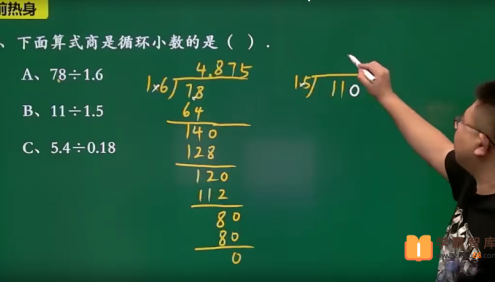 前热身
、下面算式商是循环小数的是（ ）.
A、7.8÷1.6
B、11÷1.5
C、5.4÷0.18
4.875
1.6 7.8
64
140
128
120
112
80
80
0
1.5 110